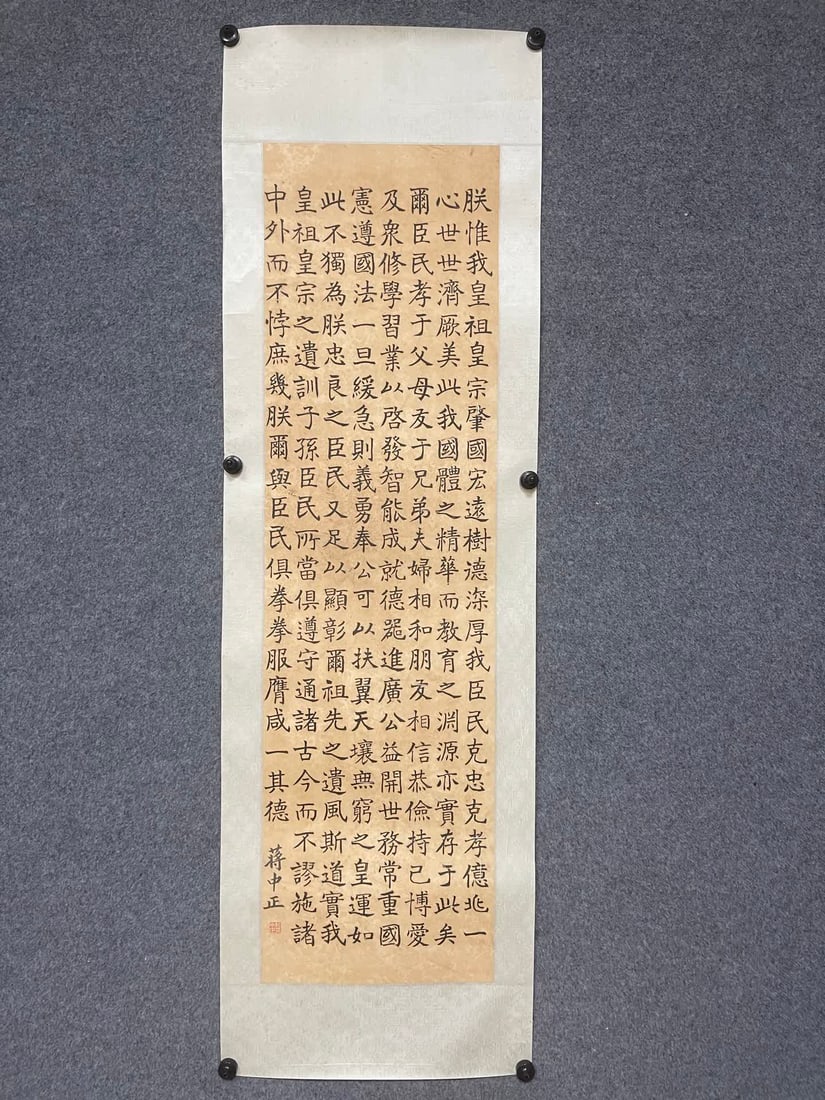 朕惟我皇祖皇宗肇國宏遠樹德深厚我臣民克忠克孝億兆一
心世世濟厥美此我國體之精華而教育之淵源亦實存于此矣
爾臣民孝于父母友于兄弟夫婦相和朋友相信恭儉持己博愛
及眾修學習業以啓發智能成就德器進廣公益開世務常重國
憲遵國法一旦緩急則義勇奉公可以扶翼天壤無窮之皇運如
此不獨為朕忠良之臣民又足以顯彰爾祖先之遺風斯道實我
皇祖皇宗之遺訓子孫臣民所當俱遵守通諸古今而不謬施諸
中外而不悖庶幾朕爾與臣民俱拳拳服膺咸一其德
蔣中正